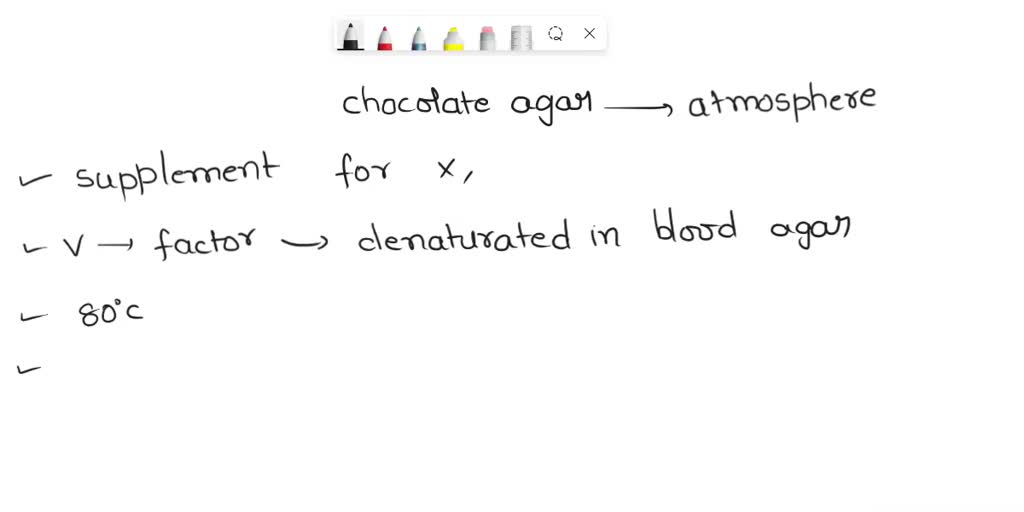 chocolate agar → atmosphere
✓ supplement for x,
✓ V → factor → denaturated in blood agar
✓ 80°c
✓